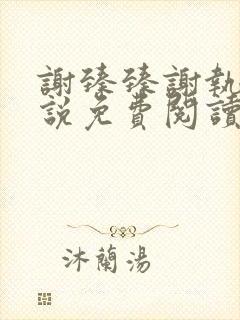 謝臻臻謝執
說免費閱讀
沐蘭湯